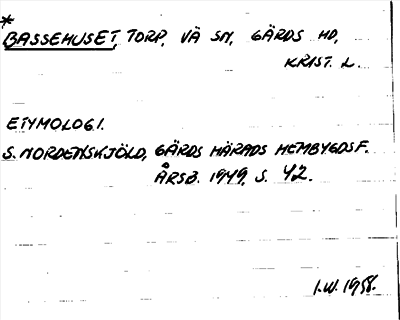 *
BASSEHUSET, TORP, VÄ SN, GÄRDS HD,
KRIST. L.
ETYMOLOGI.
S. NORDENSKJÖLD, GÄRDS HÄRADS HEMBYGDSF.
ÅRSB. 1949, S. 42.
I.W. 1958.